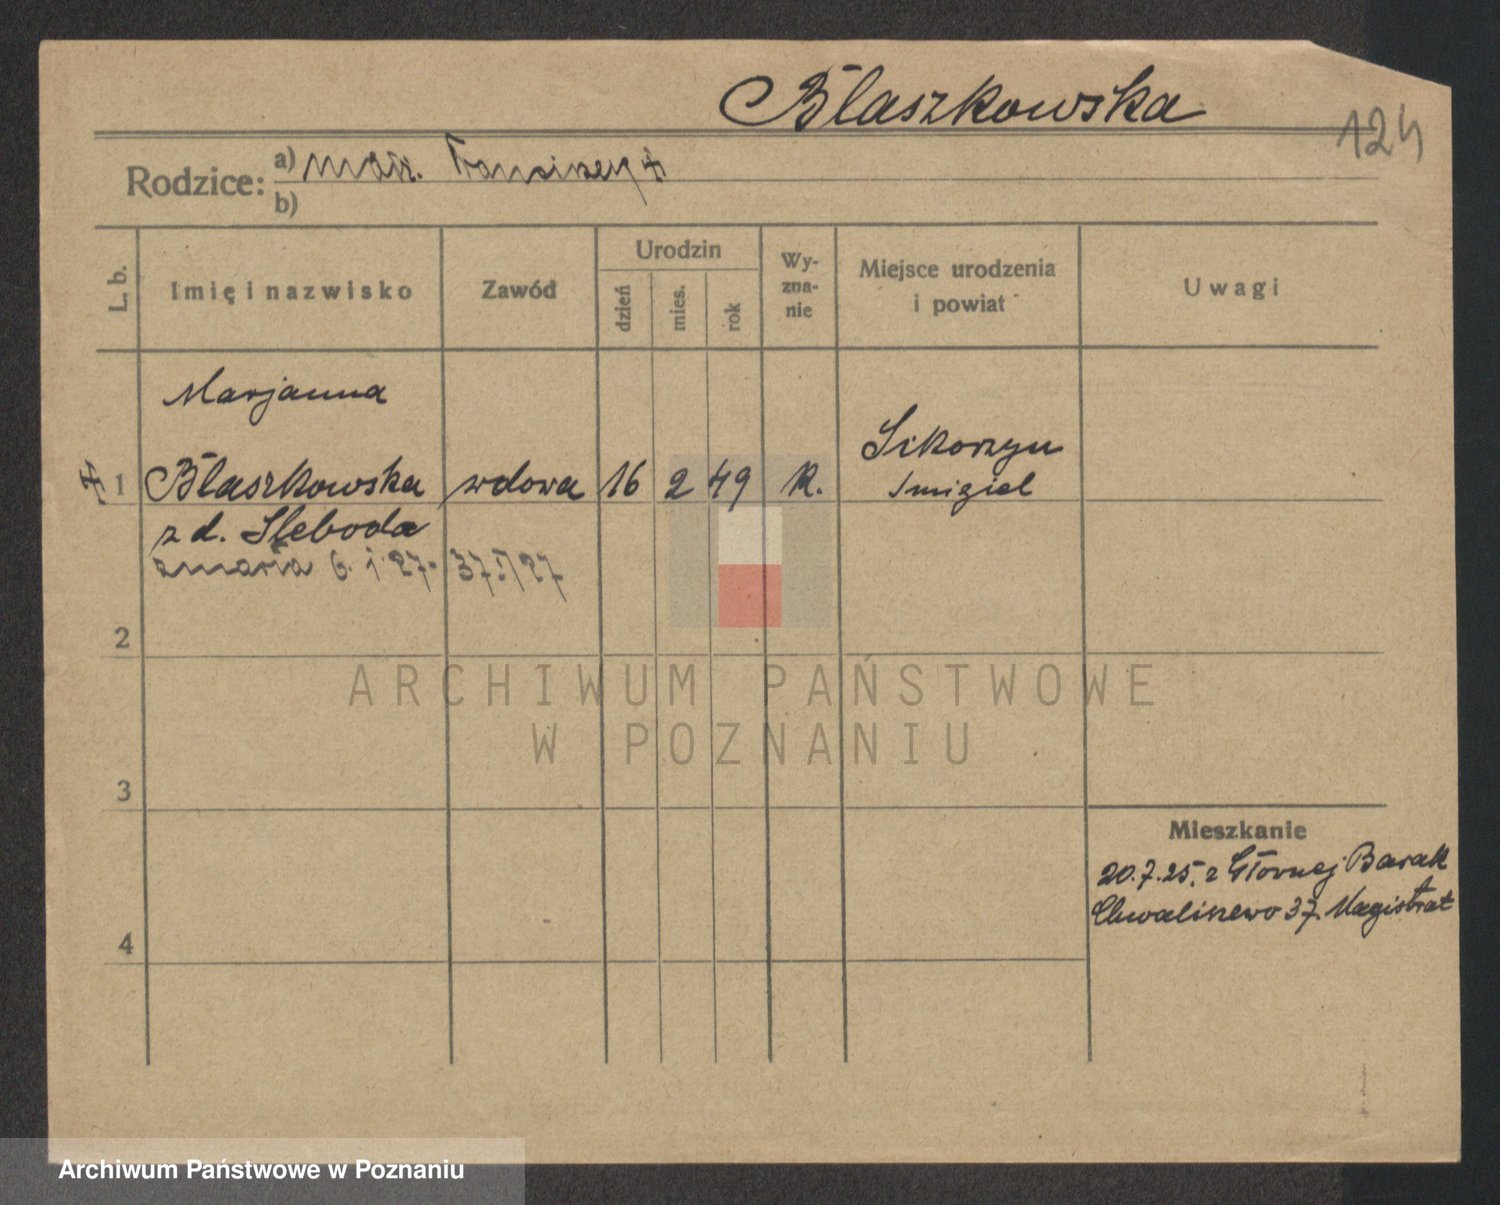 Blaszkowska
124
Rodzice: a) mąż. Franciszek †
b)
L. b.
Imię i nazwisko
Zawód
Urodzin
dzień
mies.
rok
Wy-
zna-
nie
Miejsce urodzenia
i powiat
Uwagi
Marjanna
Sikorzyn
† 1 Blaszkowska wdowa 16 2 49 K. Smigiel
z d. Sleboda
zmarła 6. 1. 27.
2
ARCHIWUM PAŃSTWOWE
W POZNANIU
3
Mieszkanie
20.7.25. z Głównej Barak
Chwaliszewo 37. Magistrat
4
Archiwum Państwowe w Poznaniu